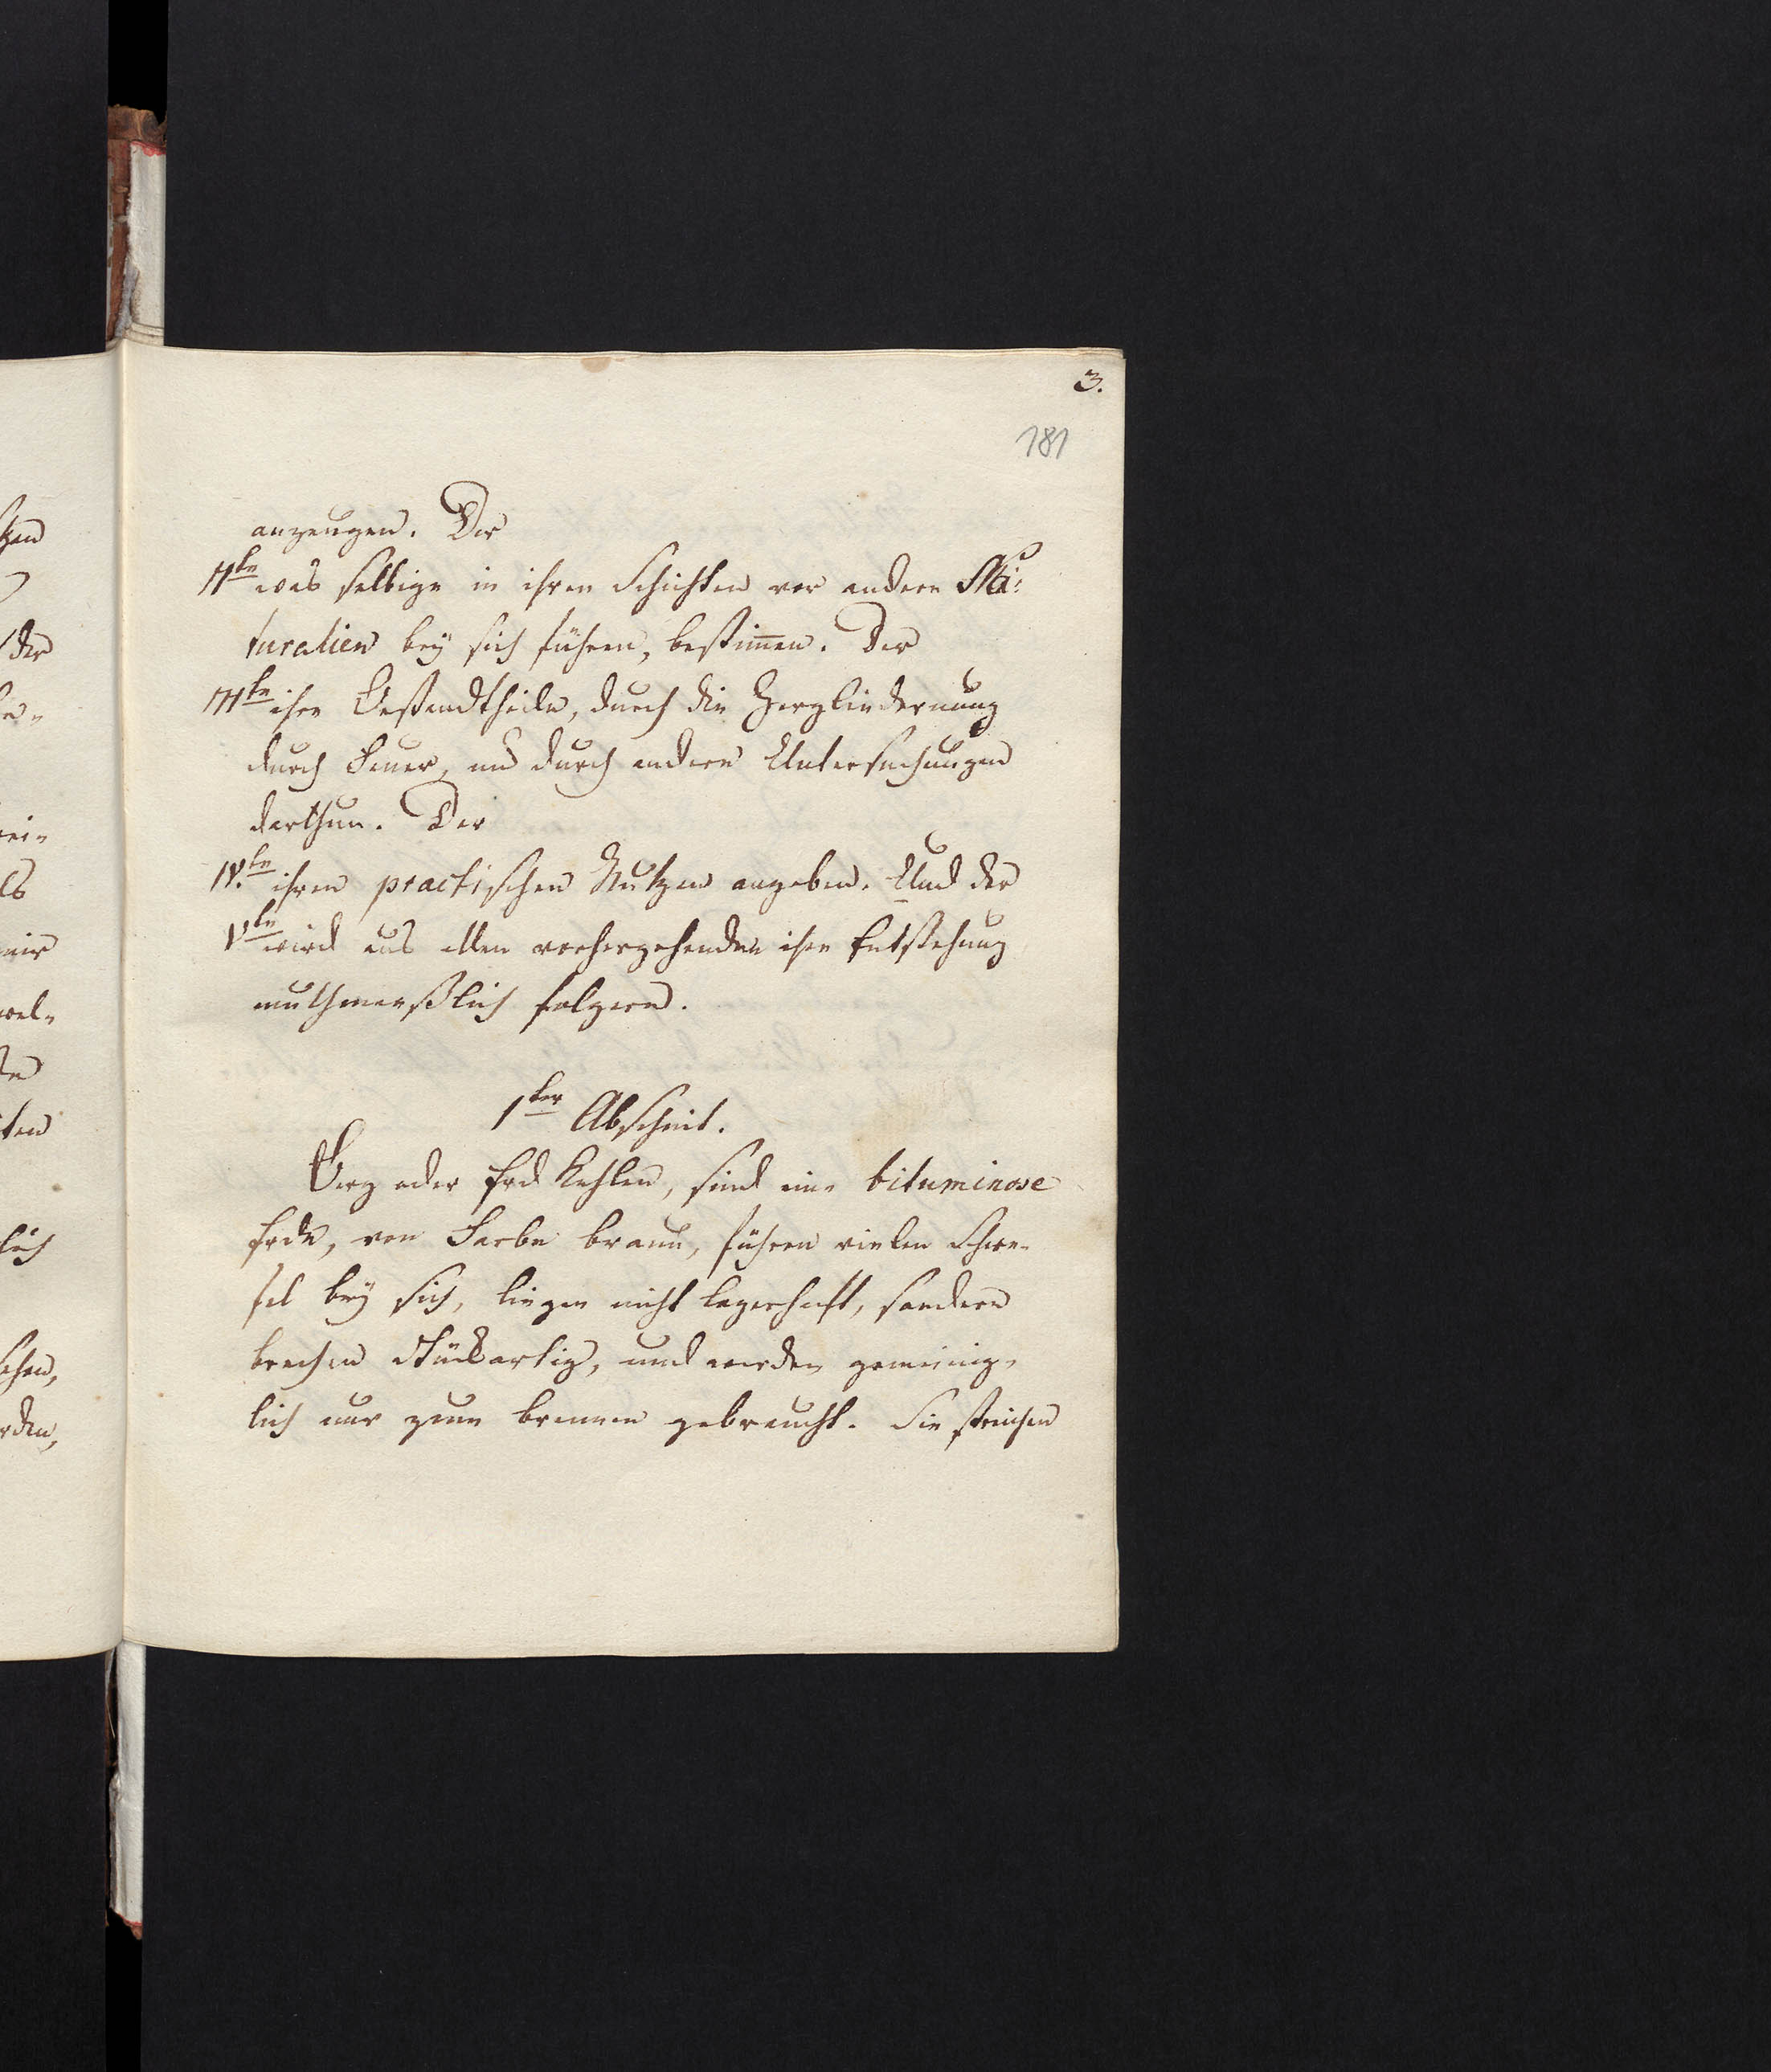 3.
181
anzeugen. Der
IIte was selbige in ihren Schichten vor andere Na:
turalien bey sich führen, bestimen. Der
IIIte ihre Bestandtheile, durch die Zergliederung
durch Feuer, und durch andere Untersuchungen
darthun. Der
IV.te ihren practischen Nutzen angeben. Und der
Vte wird aus allen vorhergehenden ihre Entstehung
muthmaaßlich folgern.
1ter Abschnit.
Berg oder Erd Kohlen, sind eine bituminose
Erde, von Farbe braun, führen vielen Schwe-
fel bey sich, liegen nicht lagerhaft, sondern
brechen stückartig, und werden gemeinig-
lich nur zum brennen gebraucht. Sie streichen
tzen
der
rei-
ls
mir
wel-
ten
lich
ehen,
rden,